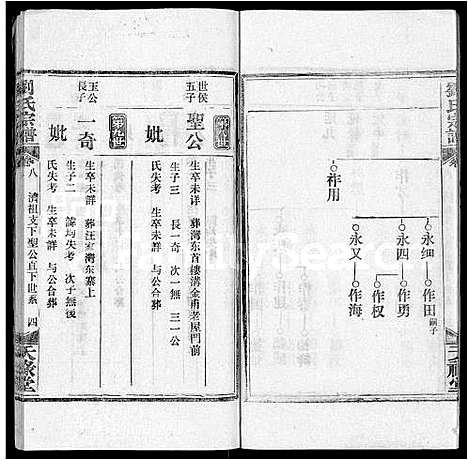 劉氏宗譜
祚用
永細
作田
嗣子
永四
作勇
作权
永又
作海
世侯
五子
聖公
生卒未詳 葬灣东首縷溝金勇老屋門前
生子三 長一奇 次一無 三一公
妣
氏失考 生卒未詳 与公合葬
王公
長子
一奇
生卒未詳 葬汪家灣东寨上
生子二 諱均失考 次子無後
妣
氏失考 生卒未詳 与公合葬
劉氏宗譜
卷八
濟祖支下聖公直下世系
四